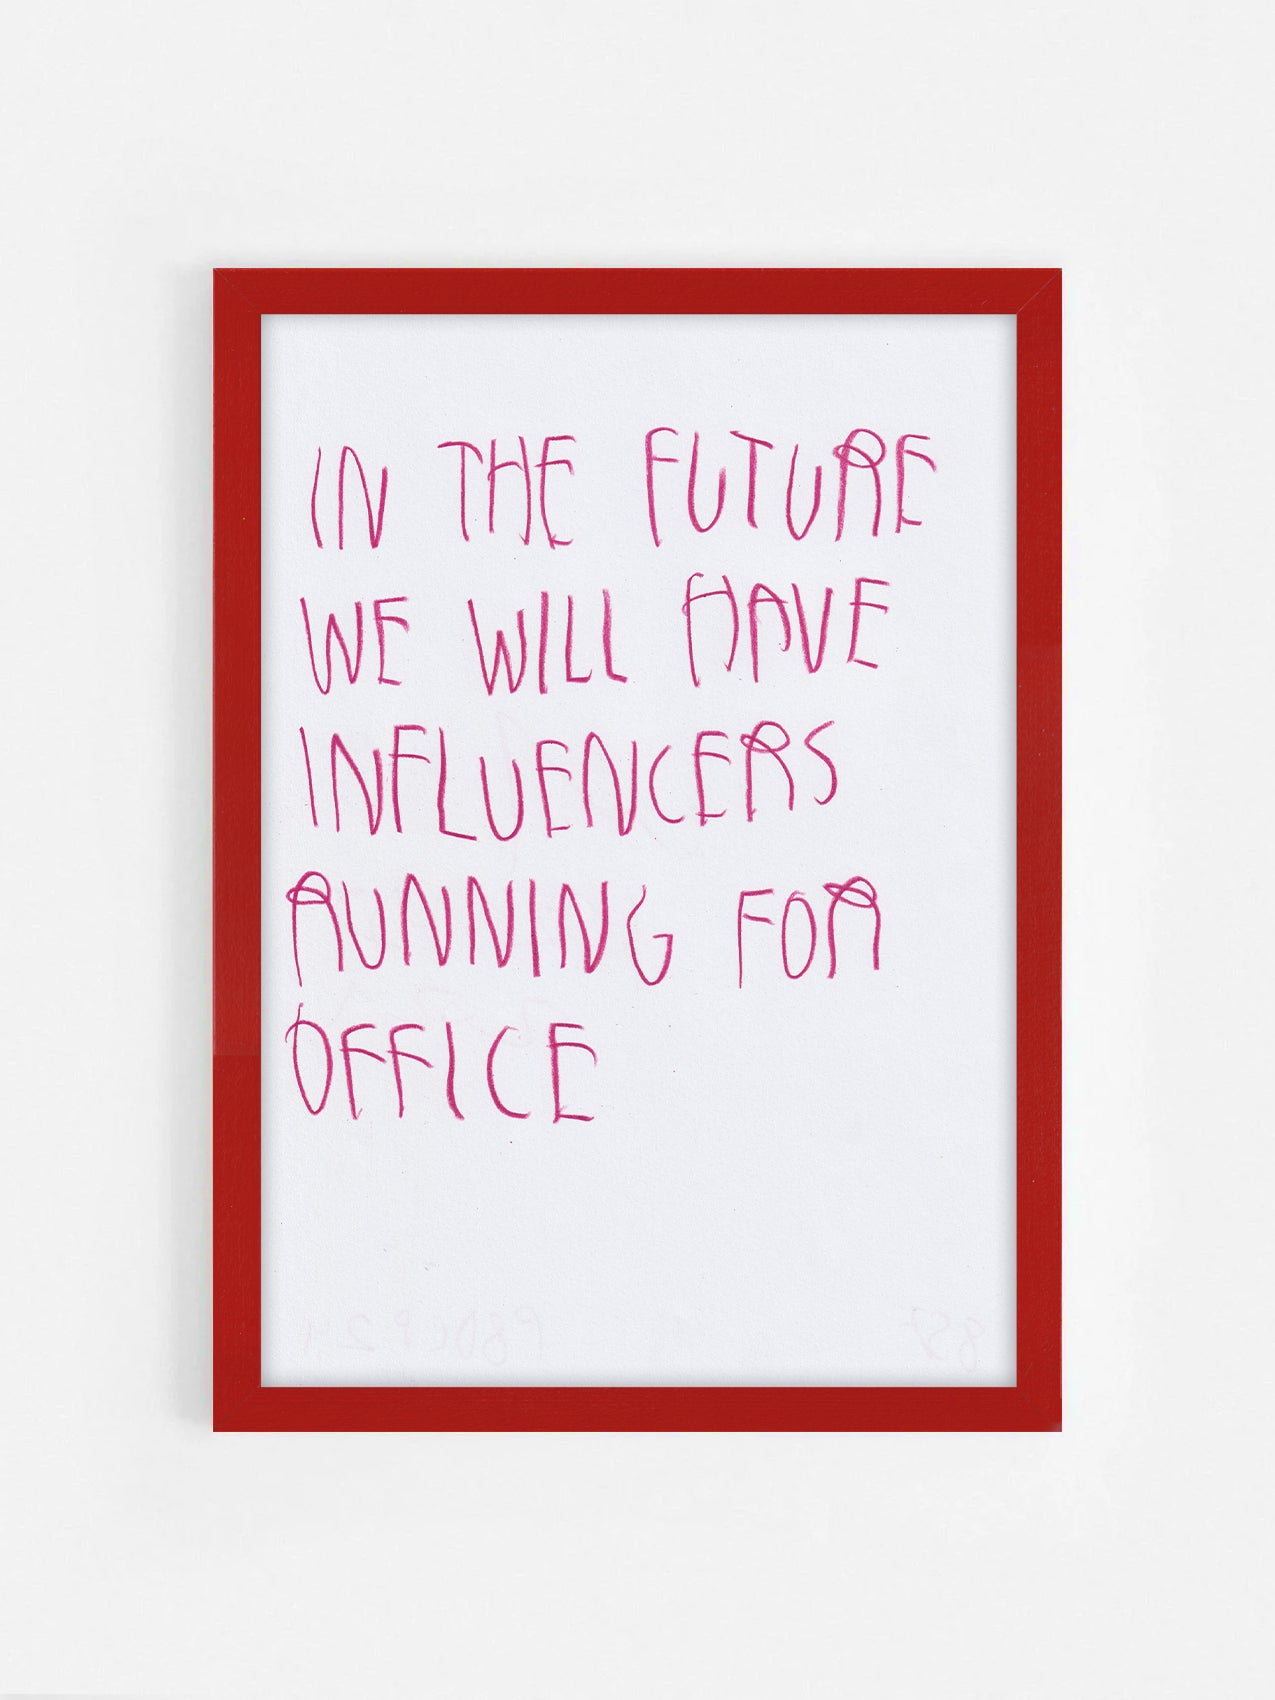 IN THE FUTURE
WE WILL HAVE
INFLUENCERS
RUNNING FOR
OFFICE